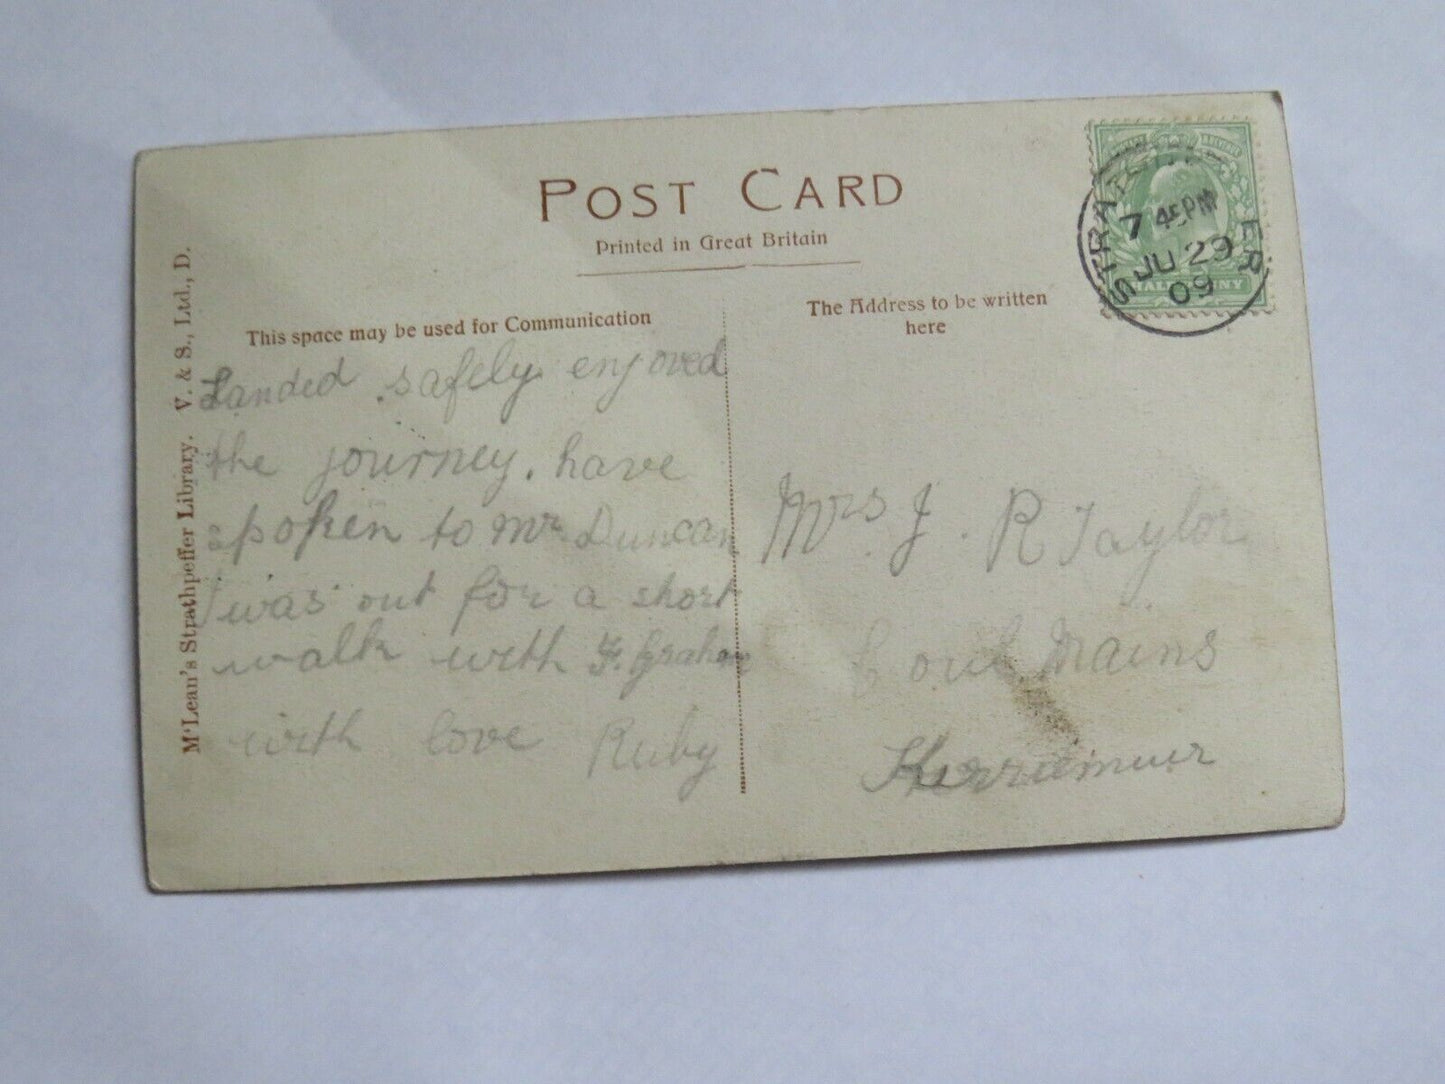 POST CARD
Printed in Great Britain
This space may be used for Communication
The Address to be written
here
M'Lean's Strathpeffer Library. V. & S., Ltd., D.
Landed safely enjoyed
the journey. have
spoken to Mr Duncan
I was out for a short
walk with F. Graham
with love Ruby
Mrs J. R Taylor
Mains
Kirriemuir
STRATHPEFFER
7 45PM
JU 29
09
HALFPENNY